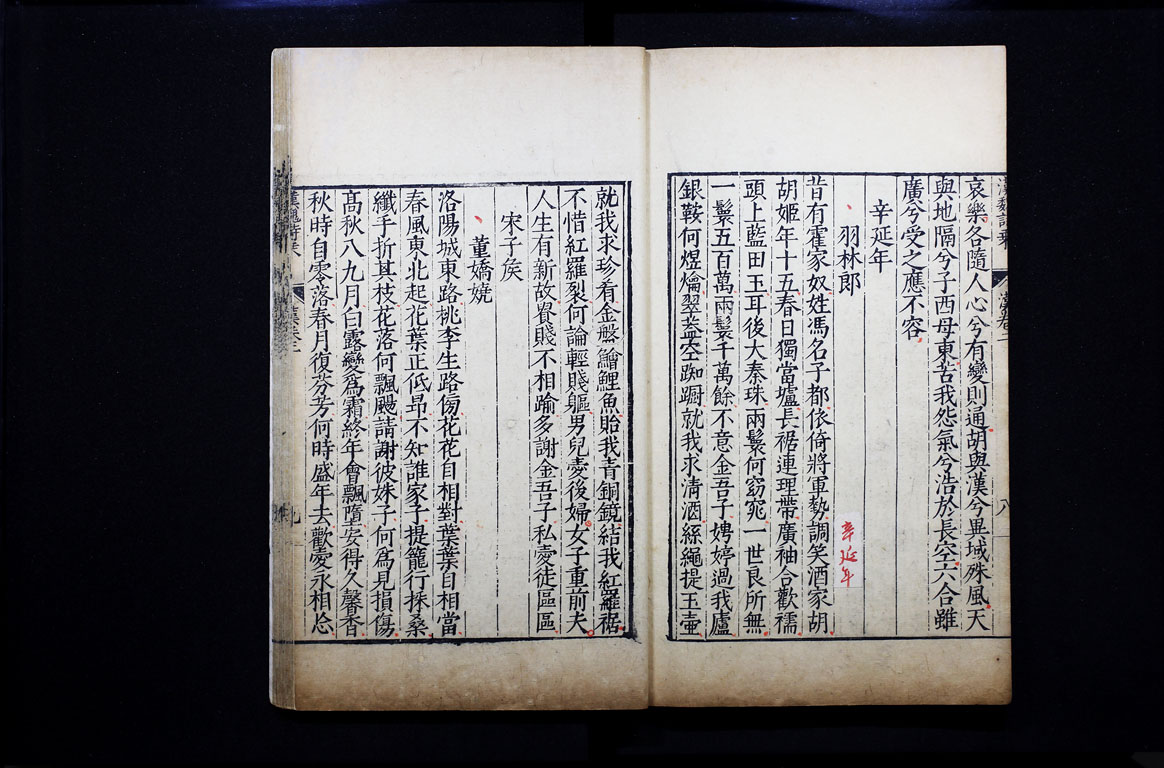 哀樂各隨人心兮有變則通胡與漢兮異域殊風天
與地隔兮子西母東苦我怨氣兮浩於長空六合雖
廣兮受之應不容
辛延年
羽林郎
辛延年
昔有霍家奴姓馮名子都依倚將軍勢調笑酒家胡
胡姬年十五春日獨當壚長裾連理帶廣袖合歡襦
頭上藍田玉耳後大秦珠兩鬟何窈窕一世良所無
一鬟五百萬兩鬟千萬餘不意金吾子娉婷過我廬
銀鞍何煜爚翠蓋空踟躕就我求清酒絲繩提玉壺
就我求珍肴金盤鱠鯉魚貽我青銅鏡結我紅羅裾
不惜紅羅裂何論輕賤軀男兒愛後婦女子重前夫
人生有新故貴賤不相踰多謝金吾子私愛徒區區
宋子侯
董嬌嬈
洛陽城東路桃李生路傍花花自相對葉葉自相當
春風東北起花葉正低昂不知誰家子提籠行採桑
纖手折其枝花落何飄颺請謝彼姝子何爲見損傷
髙秋八九月白露變爲霜終年會飄墮安得久馨香
秋時自零落春月復芬芳何時盛年去歡愛永相忘
九